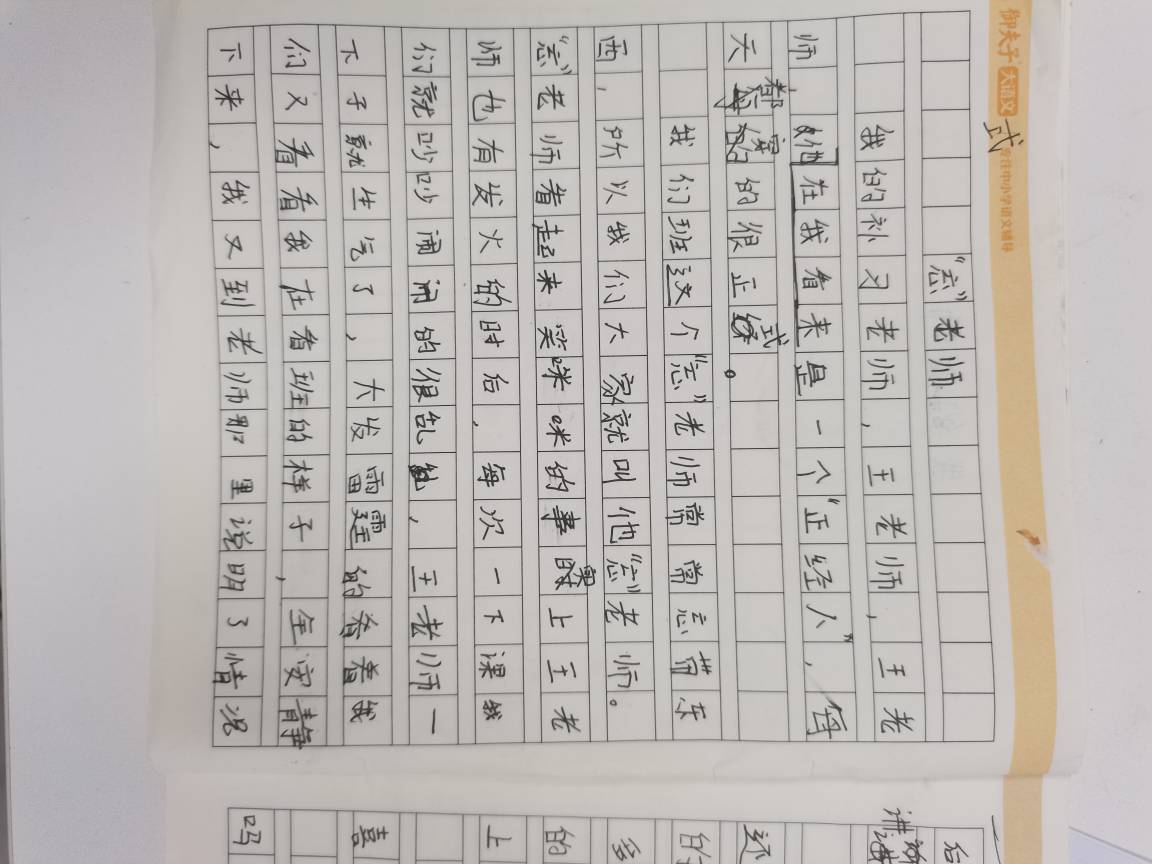 御夫子 大语文 专注中小学语文辅导
式
“忘”老师
我的补习老师，王老师，王老
师，她在我看来是一个“正经人”，每
天都穿的很正式。
我们班这个“忘”老师常常忘带东
西，所以我们大家就叫他“忘”老师。
“忘”老师看起来笑咪咪的事实上王老
师也有发火的时后，每次一下课我
们就吵吵闹闹的很乱，王老师一
下子就生气了，大发雷霆的看着我
们又看看我在看班的样子，全安静
下来，我又到老师那里说明了情况
后
讲
还
的
的
上
喜
吗